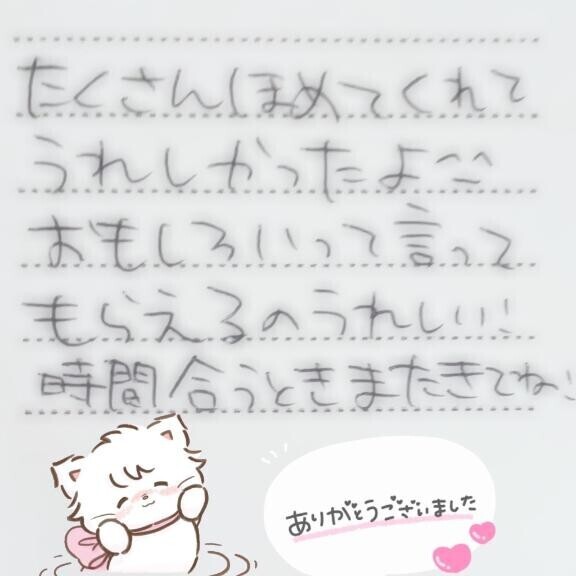 たくさんほめてくれて
うれしかったよ^^
おもしろいって言って
もらえるのうれしい!
時間合うときまたきてね!
ありがとうございました